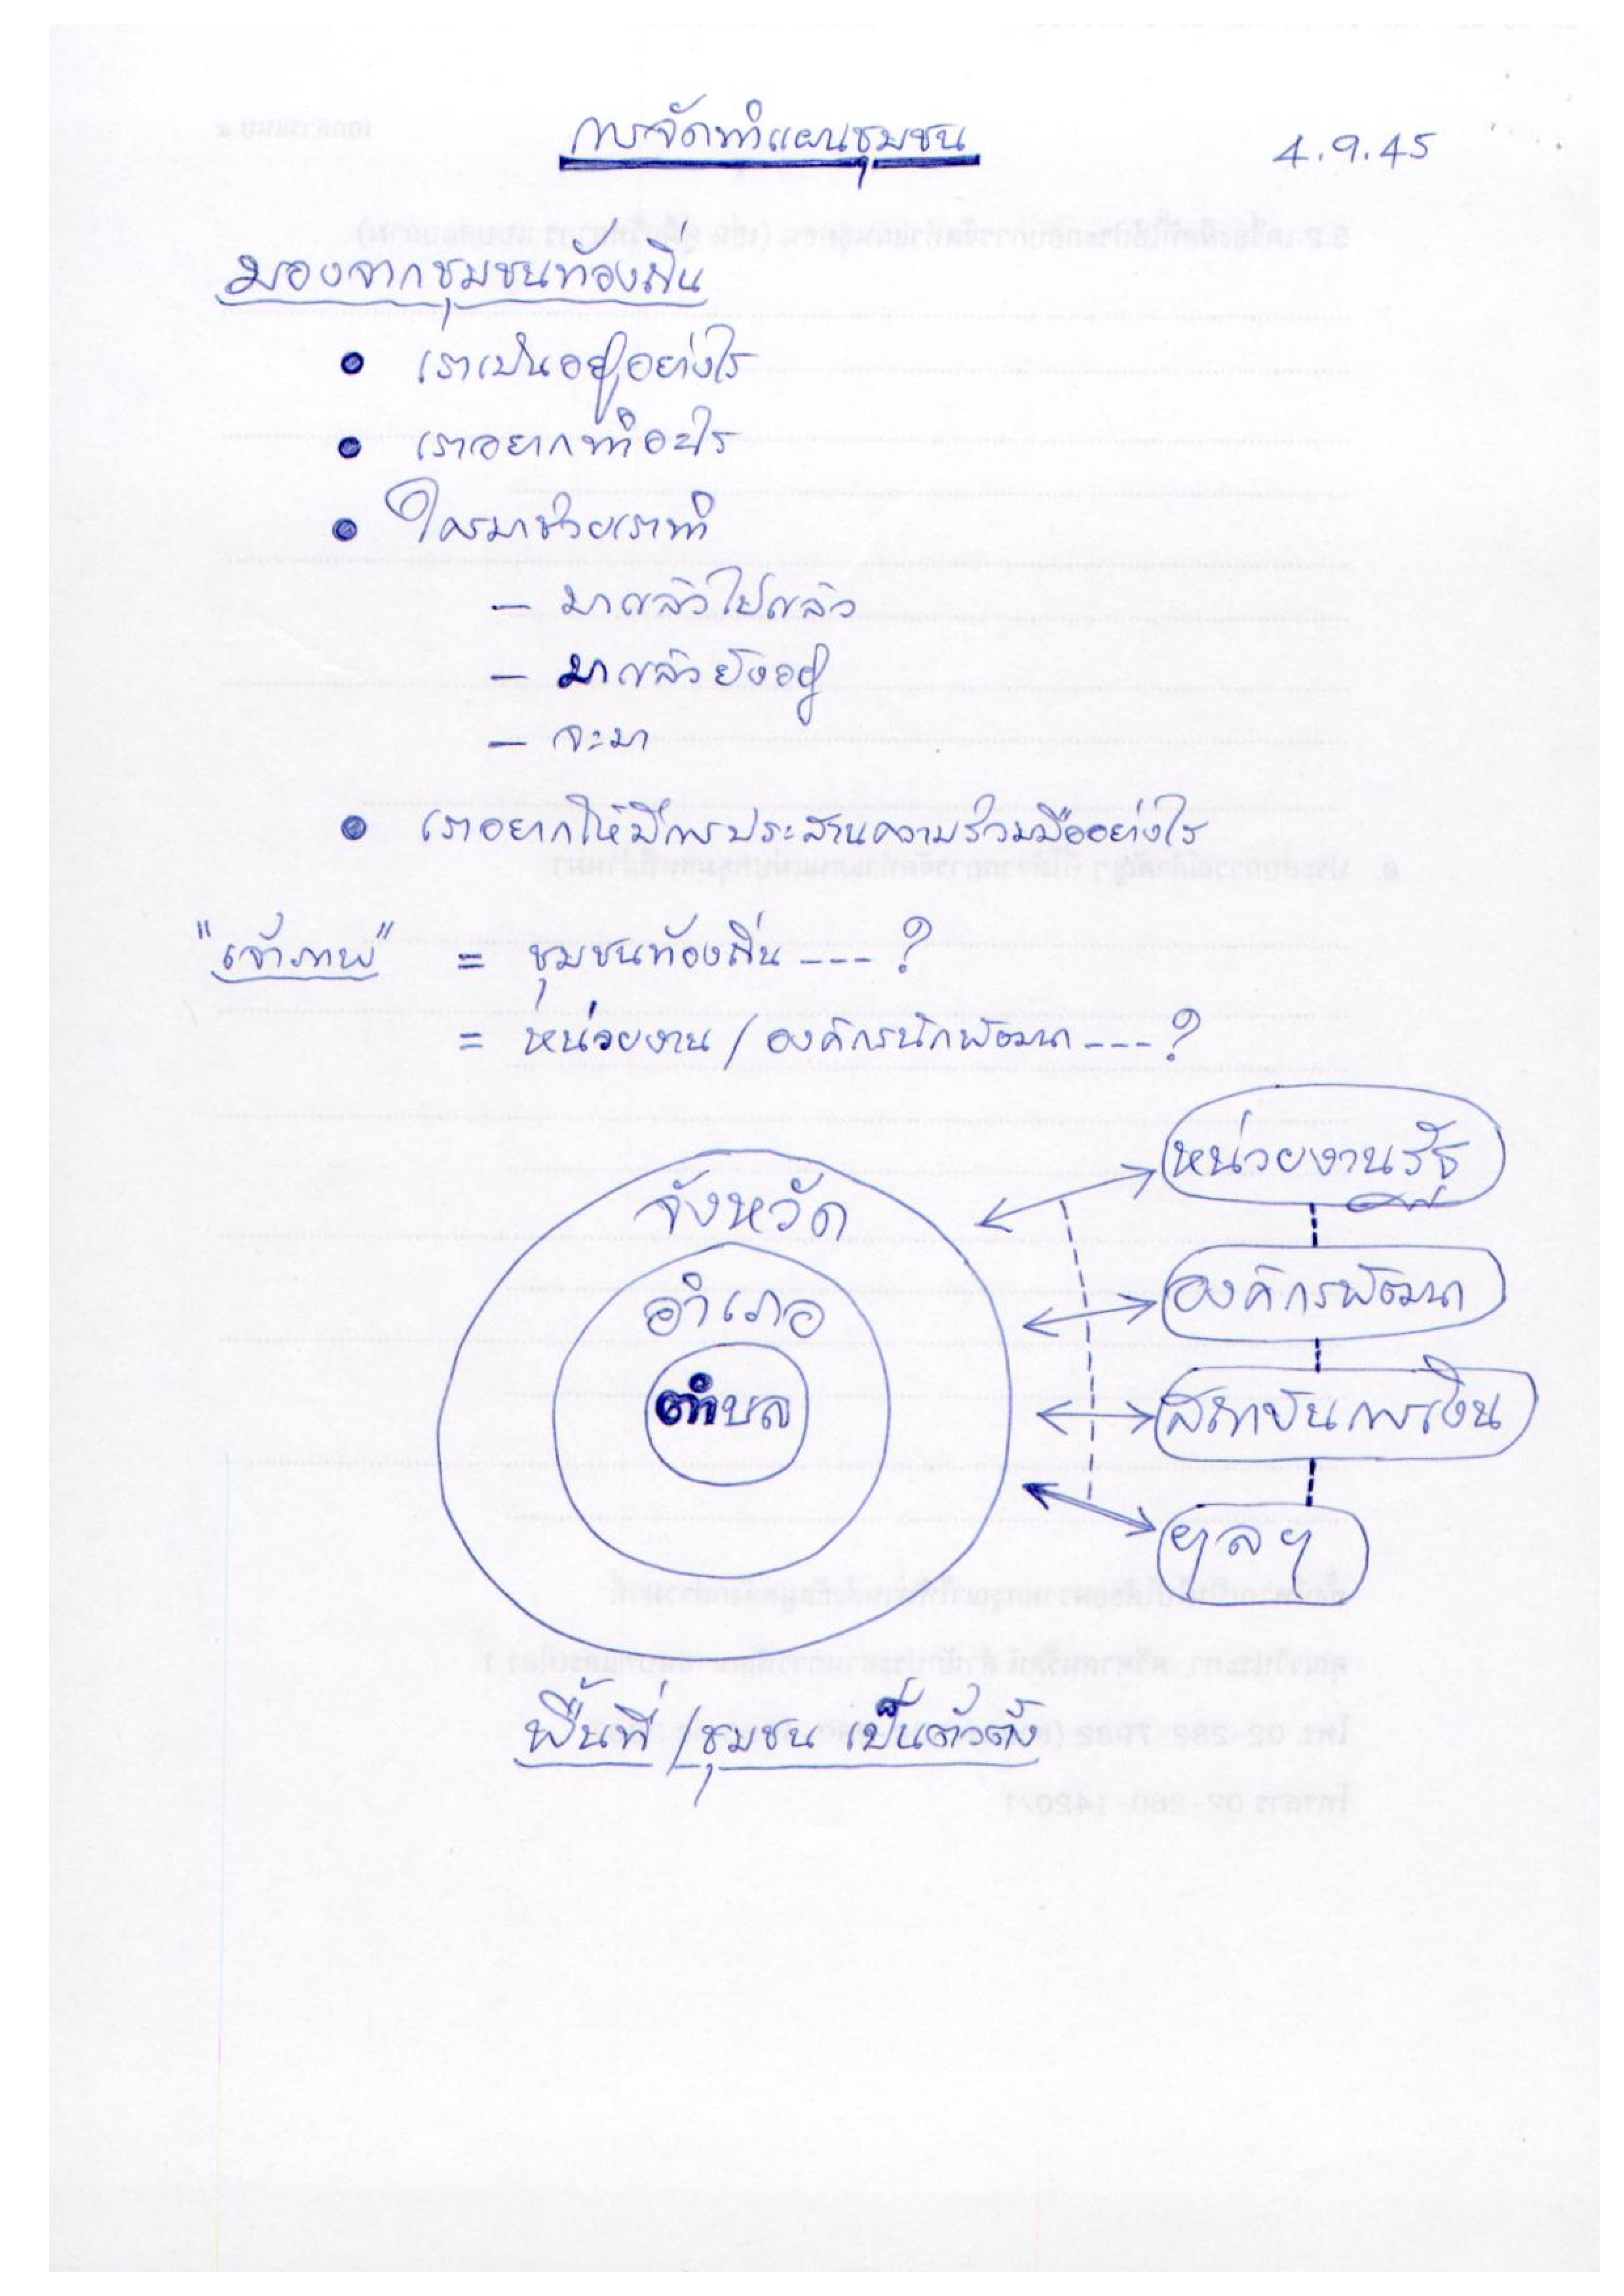 การจัดทำแผนชุมชน
4.9.45
มองจากชุมชนท้องถิ่น
• เราเป็นอยู่อย่างไร
• เราอยากทำอะไร
• ใครมาช่วยเราทำ
— มาแล้วไปแล้ว
— มาแล้วยังอยู่
— จะมา
• เราอยากให้มีการประสานความร่วมมืออย่างไร
"เจ้าภาพ" = ชุมชนท้องถิ่น --- ?
= หน่วยงาน / องค์กรนักพัฒนา --- ?
หน่วยงานรัฐ
จังหวัด
องค์กรพัฒนา
อำเภอ
ตำบล
สถาบันการเงิน
ฯลฯ
พื้นที่ / ชุมชน เป็นตัวตั้ง